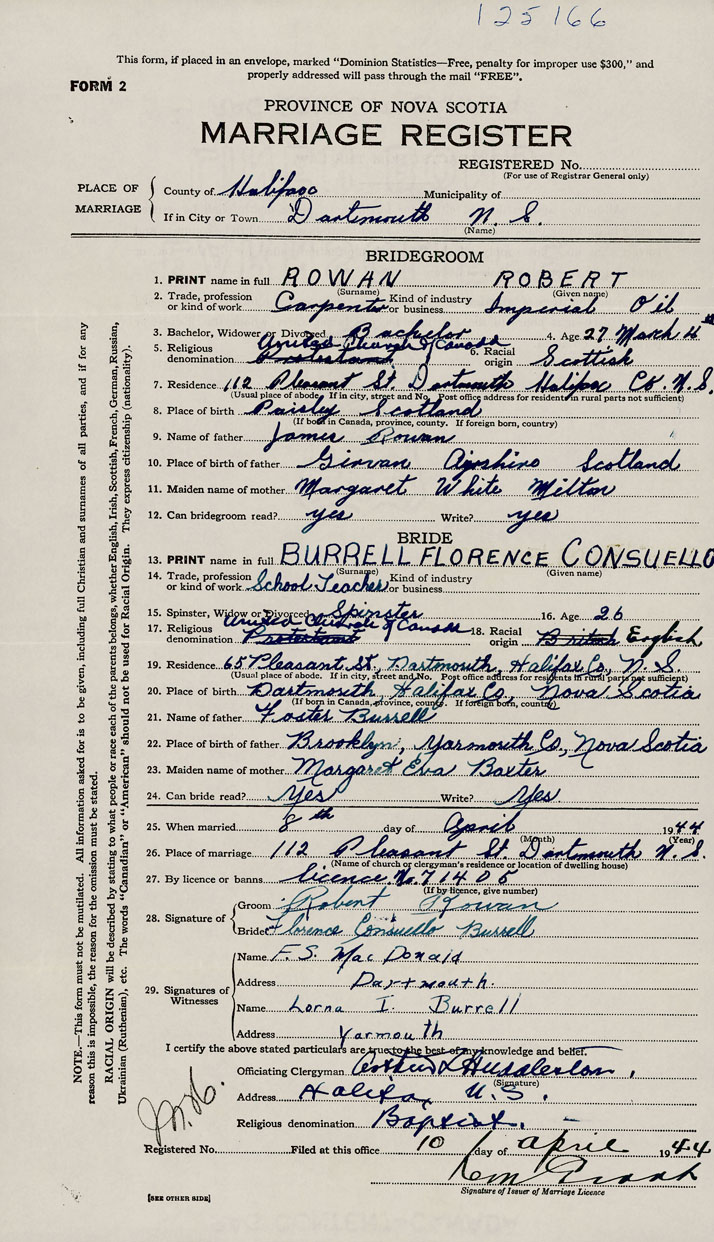 125166
This form, if placed in an envelope, marked "Dominion Statistics—Free, penalty for improper use $300," and
properly addressed will pass through the mail "FREE".
FORM 2
PROVINCE OF NOVA SCOTIA
MARRIAGE REGISTER
REGISTERED No.
(For use of Registrar General only)
PLACE OF MARRIAGE
County of Halifax Municipality of
If in City or Town Dartmouth N. S.
(Name)
BRIDEGROOM
1. PRINT name in full ROWAN ROBERT
(Surname) (Given name)
2. Trade, profession or kind of work Carpenter Kind of industry or business Imperial Oil
3. Bachelor, Widower or Divorced Bachelor 4. Age 27 March 4
5. Religious denomination United Church of Canada Protestant 6. Racial origin Scottish
7. Residence 112 Pleasant St. Dartmouth Halifax Co. N.S.
(Usual place of abode. If in city, street and No. Post office address for resident in rural parts not sufficient)
8. Place of birth Paisley Scotland
(If born in Canada, province, county. If foreign born, country)
9. Name of father James Rowan
10. Place of birth of father Girvan Ayrshire Scotland
11. Maiden name of mother Margaret White Milton
12. Can bridegroom read? yes Write? yes
BRIDE
13. PRINT name in full BURRELL FLORENCE CONSUELLO
(Surname) (Given name)
14. Trade, profession or kind of work School Teacher Kind of industry or business
15. Spinster, Widow or Divorced Spinster 16. Age 26
17. Religious denomination United Church of Canada Protestant 18. Racial origin British English
19. Residence 65 Pleasant St., Dartmouth, Halifax Co., N. S.
(Usual place of abode. If in city, street and No. Post office address for residents in rural parts not sufficient)
20. Place of birth Dartmouth, Halifax Co., Nova Scotia
(If born in Canada, province, county. If foreign born, country)
21. Name of father Foster Burrell
22. Place of birth of father Brooklyn, Yarmouth Co., Nova Scotia
23. Maiden name of mother Margaret Eva Baxter
24. Can bride read? Yes Write? Yes
25. When married 8th day of April 1944
(Month) (Year)
26. Place of marriage 112 Pleasant St. Dartmouth N. S.
(Name of church or clergyman's residence or location of dwelling house)
27. By licence or banns licence No. 71405
(If by licence, give number)
28. Signature of
Groom Robert Rowan
Bride Florence Consuello Burrell
29. Signatures of Witnesses
Name F. S. MacDonald
Address Dartmouth.
Name Lorna I. Burrell
Address Yarmouth
I certify the above stated particulars are true to the best of my knowledge and belief.
Officiating Clergyman
(Signature)
Address Halifax N.S.
Religious denomination Baptist.
Registered No. Filed at this office 10 day of April 1944
Signature of Issuer of Marriage Licence
[SEE OTHER SIDE]
NOTE.—This form must not be mutilated. All information asked for is to be given, including full Christian and surnames of all parties, and if for any
reason this is impossible, the reason for the omission must be stated.
RACIAL ORIGIN will be described by stating to what people or race each of the parents belongs, whether English, Irish, Scottish, French, German, Russian,
Ukrainian (Ruthenian), etc. The words "Canadian" or "American" should not be used for Racial Origin. They express citizenship (nationality).